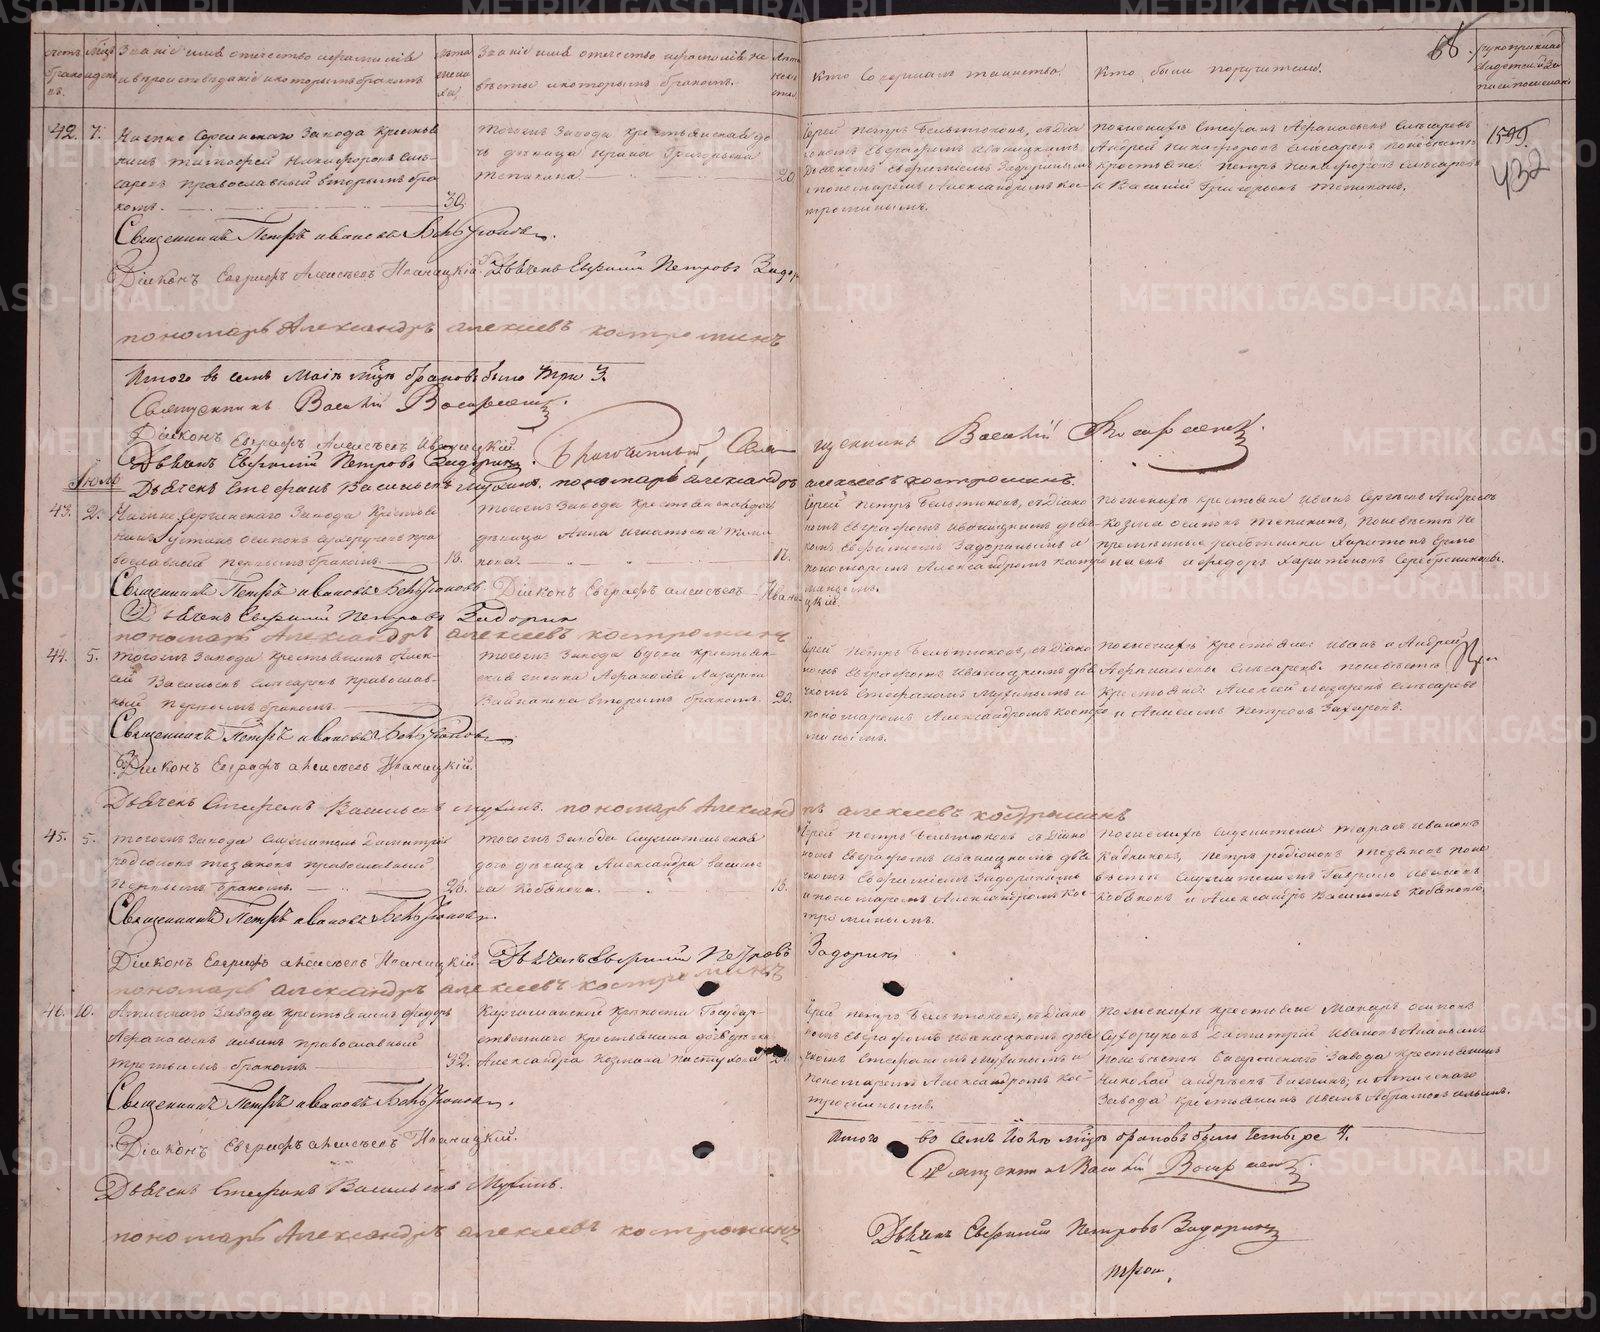 68.
счетъ браковъ.
Мѣсяцъ и день
Званіе имя отечество и фамилія жениха и вѣроисповѣданіе и которымъ бракомъ
Лѣта жениха
Званіе имя отечество и фамилія невѣсты и которымъ бракомъ.
Лѣта невѣсты
Кто совершалъ таинство.
Кто были поручители.
1595
432
42. 7.
Нижне Сергинскаго Завода крестья
нинъ Тимофей Никифоровъ Слѣ-
саревъ православный вторымъ бра
комъ. 30.
тогожъ Завода крестьянская до
чь дѣвица Ирина Григорьева
Тепикина. 20.
Іерей Петръ Бельтюковъ, съ Діа
кономъ Евграфомъ Иваницкимъ
Дьячкомъ Ефиміемъ Задоринымъ
и пономаремъ Александромъ Кос-
троминымъ.
по женихѣ Стефанъ Афанасьевъ Слѣсаревъ
Андрей Никифоровъ Слѣсаревъ по невѣстѣ
крестьяне Петръ Никифоровъ Слѣсаревъ
и Василій Григорьевъ Тепикинъ.
Священникъ Петръ Ивановъ Бельтюковъ.
Діаконъ Евграфъ Алексѣевъ Иваницкій. Дьячекъ Ефимій Петровъ Задор
пономарь Александръ алексѣевъ костроминъ
Итого въ семъ Маіѣ мцѣ браковъ было три 3.
Священникъ Василій Воскресенск
Діаконъ Евграфъ Алексѣевъ Иваницкій
Дьячекъ Ефимій Петровъ Задоринъ.
Благочинный, Священникъ Василій Воскресенск
Дьячекъ Стефанъ Васильевъ Мухинъ. пономарь александръ алексѣевъ костроминъ.
Іюль
43. 2.
Нижне Сергинскаго Завода Крестьяни
нъ Устинъ Осиповъ Сухоруковъ пра
вославный первымъ бракомъ. 18.
тогожъ Завода Крестьянская дочь
дѣвица Анна Игнатьева
17.
Іерей Петръ Бельтюковъ, съ Діако
номъ Евграфомъ Иваницкимъ дьяч
комъ Ефиміемъ Задоринымъ и
пономаремъ Александромъ Костро
минымъ.
по женихѣ крестьяне Иванъ Сергѣевъ Андреевъ
Козма Осиповъ Тепикинъ, по невѣстѣ не
премѣнные работники Харитонъ Ермо
лаевъ и Федоръ Харитоновъ Серебрениковы.
Священникъ Петръ Ивановъ Бельтюковъ. Діаконъ Евграфъ алексѣевъ Иваницкій.
Дьячекъ Ефимій Петровъ Задорин
пономарь Александръ алексѣевъ костроминъ
44. 5.
тогожъ Завода крестьянинъ Алек-
сѣй Васильевъ Слѣсаревъ православ-
ный первымъ бракомъ.
тогожъ Завода вдова крестьян-
ская женка Афанасія Лазарева
вторымъ бракомъ. 22.
Іерей Петръ Бельтюковъ, съ Діако
номъ Евграфомъ Иваницкимъ дья
чкомъ Стефаномъ Мухинымъ и
пономаремъ Александромъ Костро
минымъ.
по женихѣ крестьяне: Иванъ и Андрей
Афанасьевы Слѣсаревы. по невѣстѣ
Крестьяне: Алексѣй Лазаревъ Слѣсаревъ
и Алексѣй Петровъ Захаровъ.
Священникъ Петръ Ивановъ Бельтюковъ
Діаконъ Евграфъ Алексѣевъ Иваницкій.
Дьячекъ Стефанъ Васильевъ Мухинъ. пономарь Александръ алексѣевъ костроминъ
45. 5.
тогожъ Завода Служитель Димитрій
Родіоновъ Тезяковъ православный
первымъ бракомъ. 20.
тогожъ Завода Служительская
дочь дѣвица Александра Василье
ва Кобякова. 18.
Іерей Петръ Бельтюковъ съ Діако
номъ Евграфомъ Иваницкимъ дья
чкомъ Ефиміемъ Задоринымъ
и пономаремъ Александромъ Кос-
троминымъ.
по женихѣ Служители: Тарасъ Ивановъ
Кадниковъ, Петръ Родіоновъ Тезяковъ по не
вѣстѣ Служители: Гаврило Ивановъ
Кобяковъ и Александръ Васильевъ Кобяковъ
Священникъ Петръ Ивановъ Бельтюковъ.
Діаконъ Евграфъ Алексѣевъ Иваницкій. Дьячекъ Ефимій Петровъ Задоринъ
пономарь александръ алексѣевъ костроминъ
46. 10.
Атигскаго Завода крестьянинъ Федоръ
Афанасьевъ Ильинъ православный
третьимъ бракомъ 32.
Киргишанской крѣпости Государ-
ственнаго крестьянина дочь дѣвка
Александра Козмина Пастухова
Іерей Петръ Бельтюковъ, съ Діако
номъ Евграфомъ Иваницкимъ дья
чкомъ Стефаномъ Мухинымъ и
пономаремъ Александромъ Кос-
троминымъ.
по женихѣ крестьяне Макаръ Осиповъ
Сухоруковъ Димитрій Ивановъ Ананьинъ
по невѣстѣ Завода крестьянинъ
Николай Андреевъ и Атигскаго
Завода крестьянинъ Иванъ Абрамовъ Ильинъ.
Священникъ Петръ Ивановъ Бельтюковъ.
Діаконъ Евграфъ Алексѣевъ Иваницкій.
Дьячекъ Стефанъ Васильевъ Мухинъ.
пономарь Александръ алексѣевъ костроминъ
Итого во семъ Іюлѣ мцѣ браковъ было четыре 4.
Священникъ Василій Воскресенск
Дьячекъ Ефимій Петровъ Задоринъ
METRIKI.GASO-URAL.RU